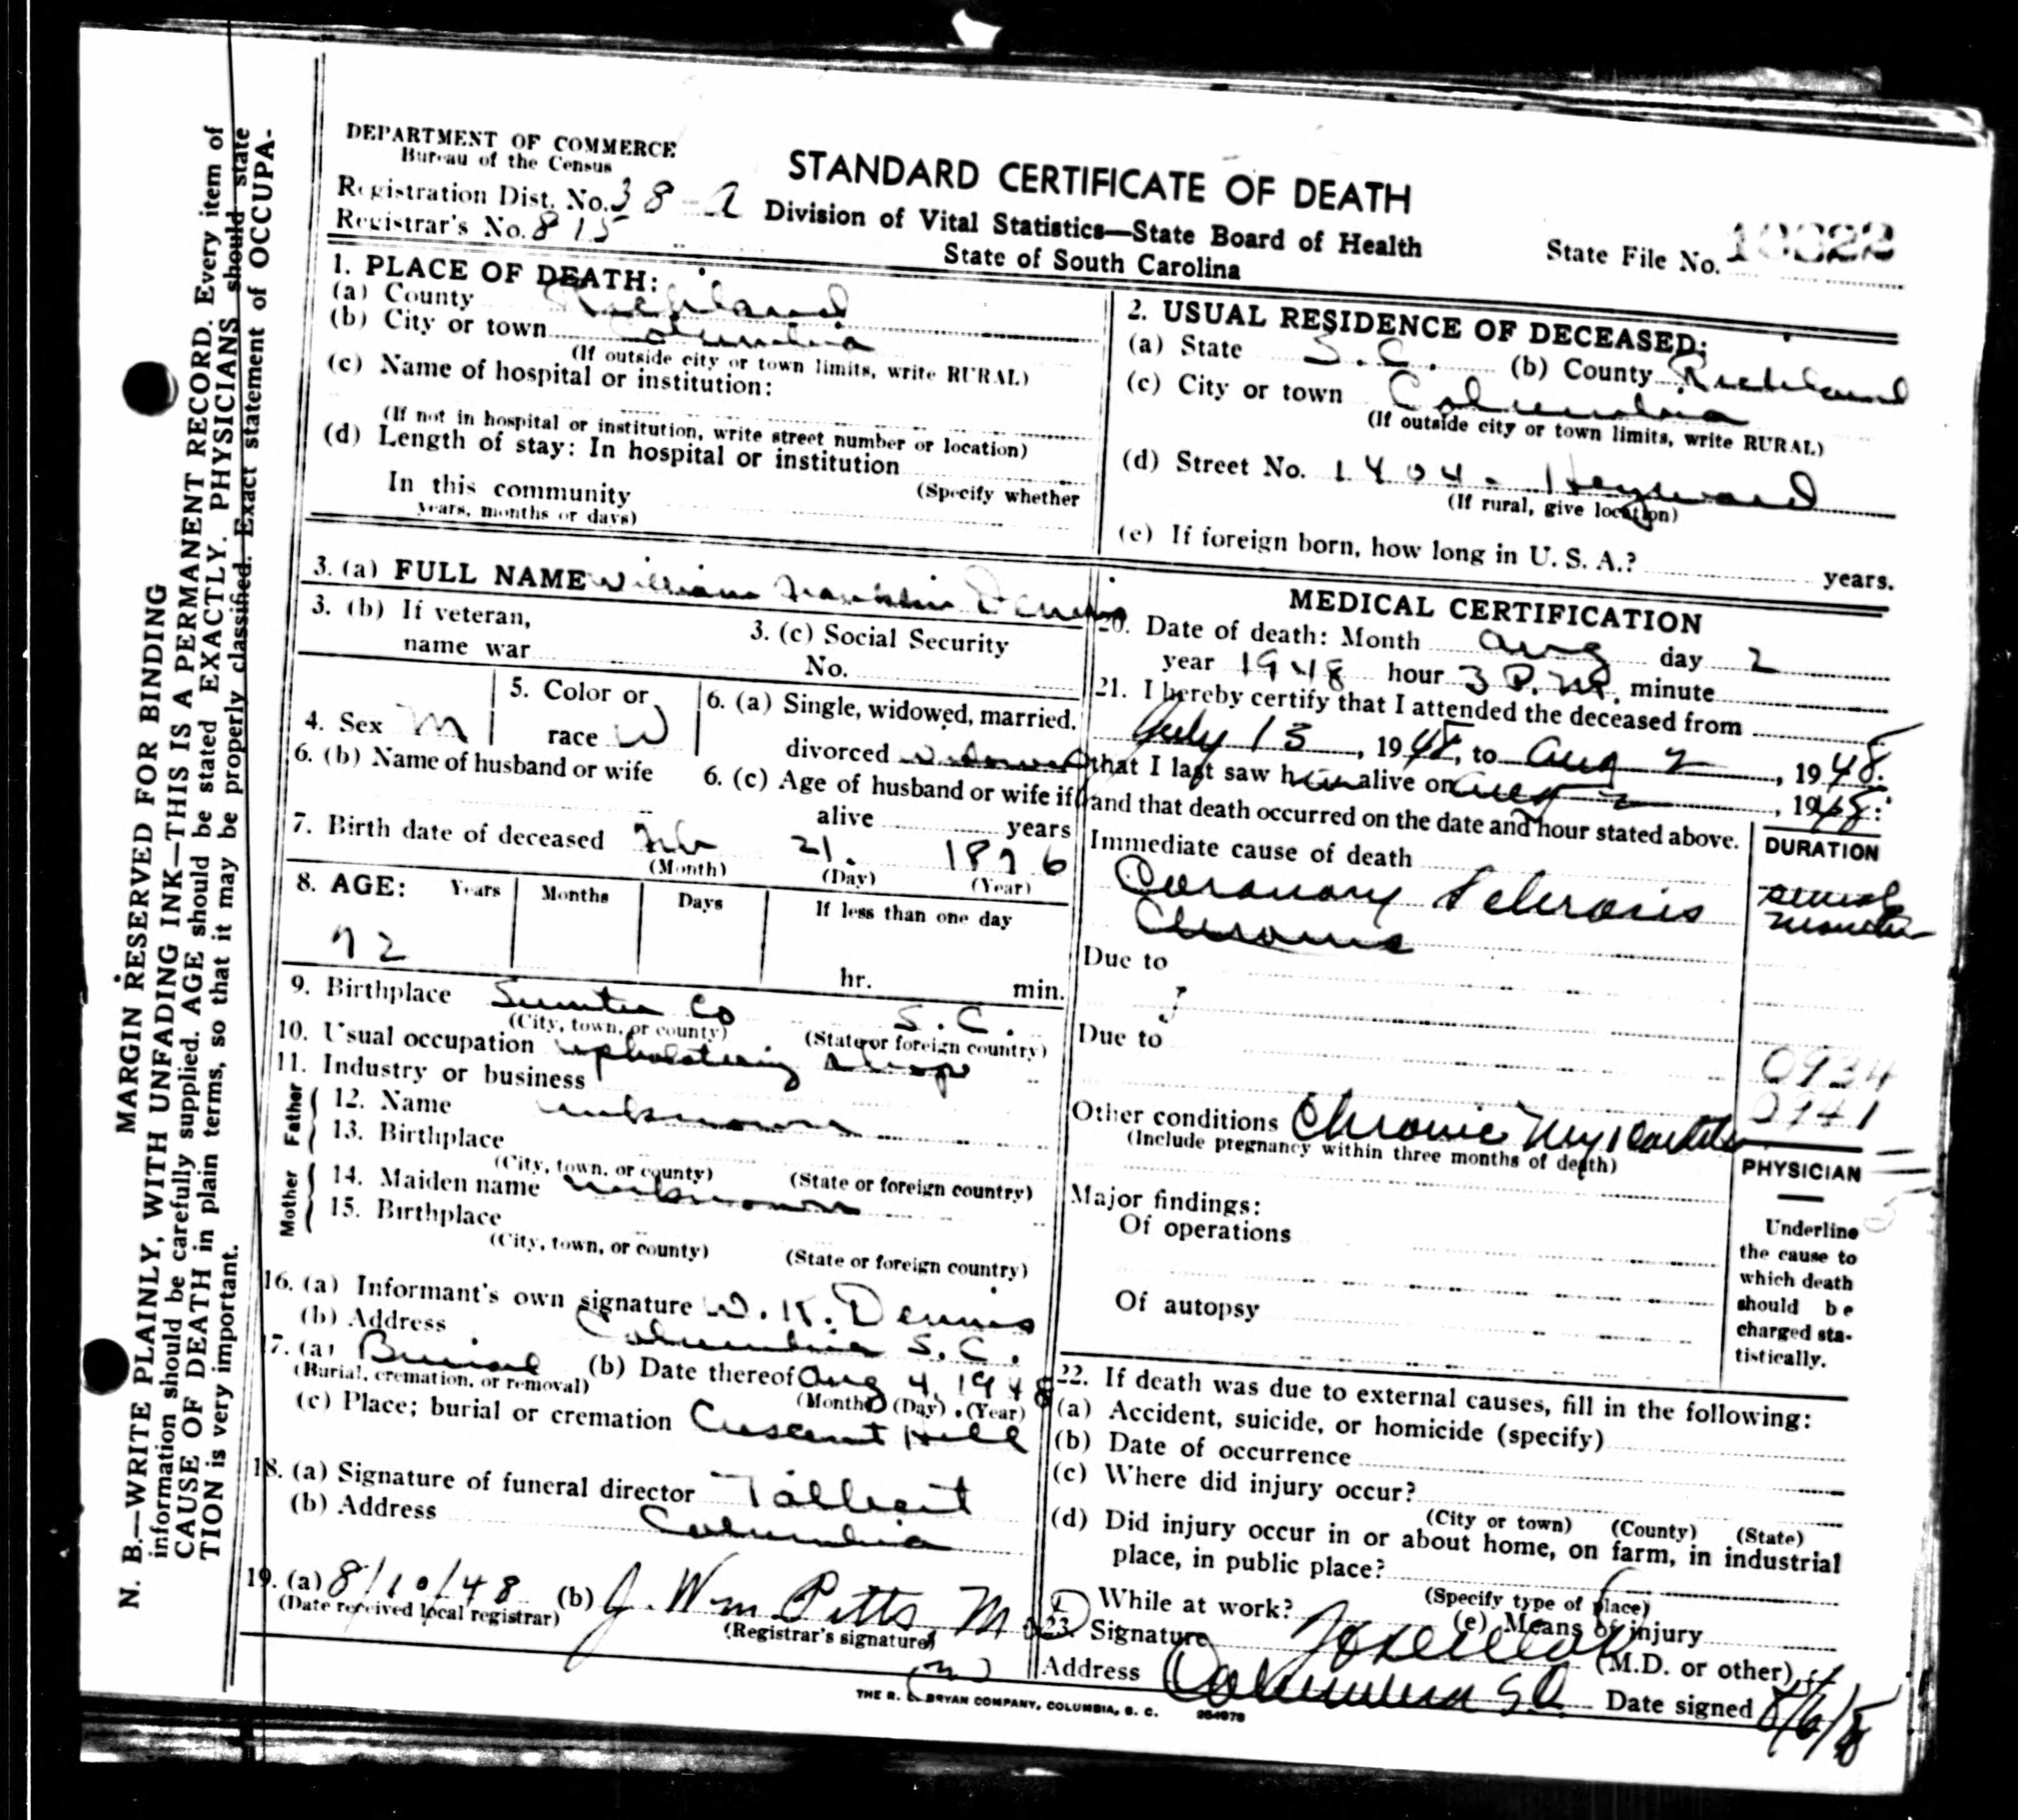 DEPARTMENT OF COMMERCE
Bureau of the Census
Registration Dist. No. 38-A
Registrar's No. 815
STANDARD CERTIFICATE OF DEATH
Division of Vital Statistics—State Board of Health
State of South Carolina
State File No.
1. PLACE OF DEATH:
(a) County Richland
(b) City or town Columbia
(If outside city or town limits, write RURAL)
(c) Name of hospital or institution:
(If not in hospital or institution, write street number or location)
(d) Length of stay: In hospital or institution
(Specify whether
In this community
years, months or days)
2. USUAL RESIDENCE OF DECEASED:
(a) State S.C. (b) County Richland
(c) City or town Columbia
(If outside city or town limits, write RURAL)
(d) Street No. 1404. Heyward
(If rural, give location)
(e) If foreign born, how long in U. S. A.? years.
3. (a) FULL NAME William Franklin Dennis
3. (b) If veteran,
name war
3. (c) Social Security
No.
4. Sex M
5. Color or
race W
6. (a) Single, widowed, married,
divorced widowed
6. (b) Name of husband or wife
6. (c) Age of husband or wife if
alive years
7. Birth date of deceased Feb 21. 1876
(Month) (Day) (Year)
8. AGE: Years Months Days If less than one day
72
hr. min.
9. Birthplace Sumter Co S.C.
(City, town, or county) (State or foreign country)
10. Usual occupation upholstering shop
11. Industry or business
Father
12. Name unknown
13. Birthplace
(City, town, or county) (State or foreign country)
Mother
14. Maiden name unknown
15. Birthplace
(City, town, or county) (State or foreign country)
16. (a) Informant's own signature W. K. Dennis
(b) Address Columbia S.C.
17. (a) Burial (b) Date thereof Aug 4, 1948
(Burial, cremation, or removal) (Month) (Day) (Year)
(c) Place; burial or cremation Crescent Hill
18. (a) Signature of funeral director Talbert
(b) Address Columbia
19. (a) 8/10/48 (b) J. Wm Pitts, M
(Date received local registrar) (Registrar's signature)
MEDICAL CERTIFICATION
20. Date of death: Month Aug day 2
year 1948 hour 3 P.M. minute
21. I hereby certify that I attended the deceased from
July 13, 1948, to Aug 2, 1948.
that I last saw him alive on Aug 2, 1948:
and that death occurred on the date and hour stated above.
DURATION
Immediate cause of death
Coronary Sclerosis
several
months
Chronic
Due to
Due to
0934
0941
Other conditions Chronic Myocarditis
(Include pregnancy within three months of death)
PHYSICIAN
Major findings:
Of operations
Of autopsy
Underline
the cause to
which death
should be
charged sta-
tistically.
22. If death was due to external causes, fill in the following:
(a) Accident, suicide, or homicide (specify)
(b) Date of occurrence
(c) Where did injury occur?
(City or town) (County) (State)
(d) Did injury occur in or about home, on farm, in industrial
place, in public place?
(Specify type of place)
While at work? (e) Means of injury
23. Signature (M.D. or other)
Address Columbia SC Date signed 8/6/48
THE R. L. BRYAN COMPANY, COLUMBIA, S. C.
MARGIN RESERVED FOR BINDING
N. B.—WRITE PLAINLY, WITH UNFADING INK—THIS IS A PERMANENT RECORD. Every item of
information should be carefully supplied. AGE should be stated EXACTLY. PHYSICIANS should state
CAUSE OF DEATH in plain terms, so that it may be properly classified. Exact statement of OCCUPA-
TION is very important.